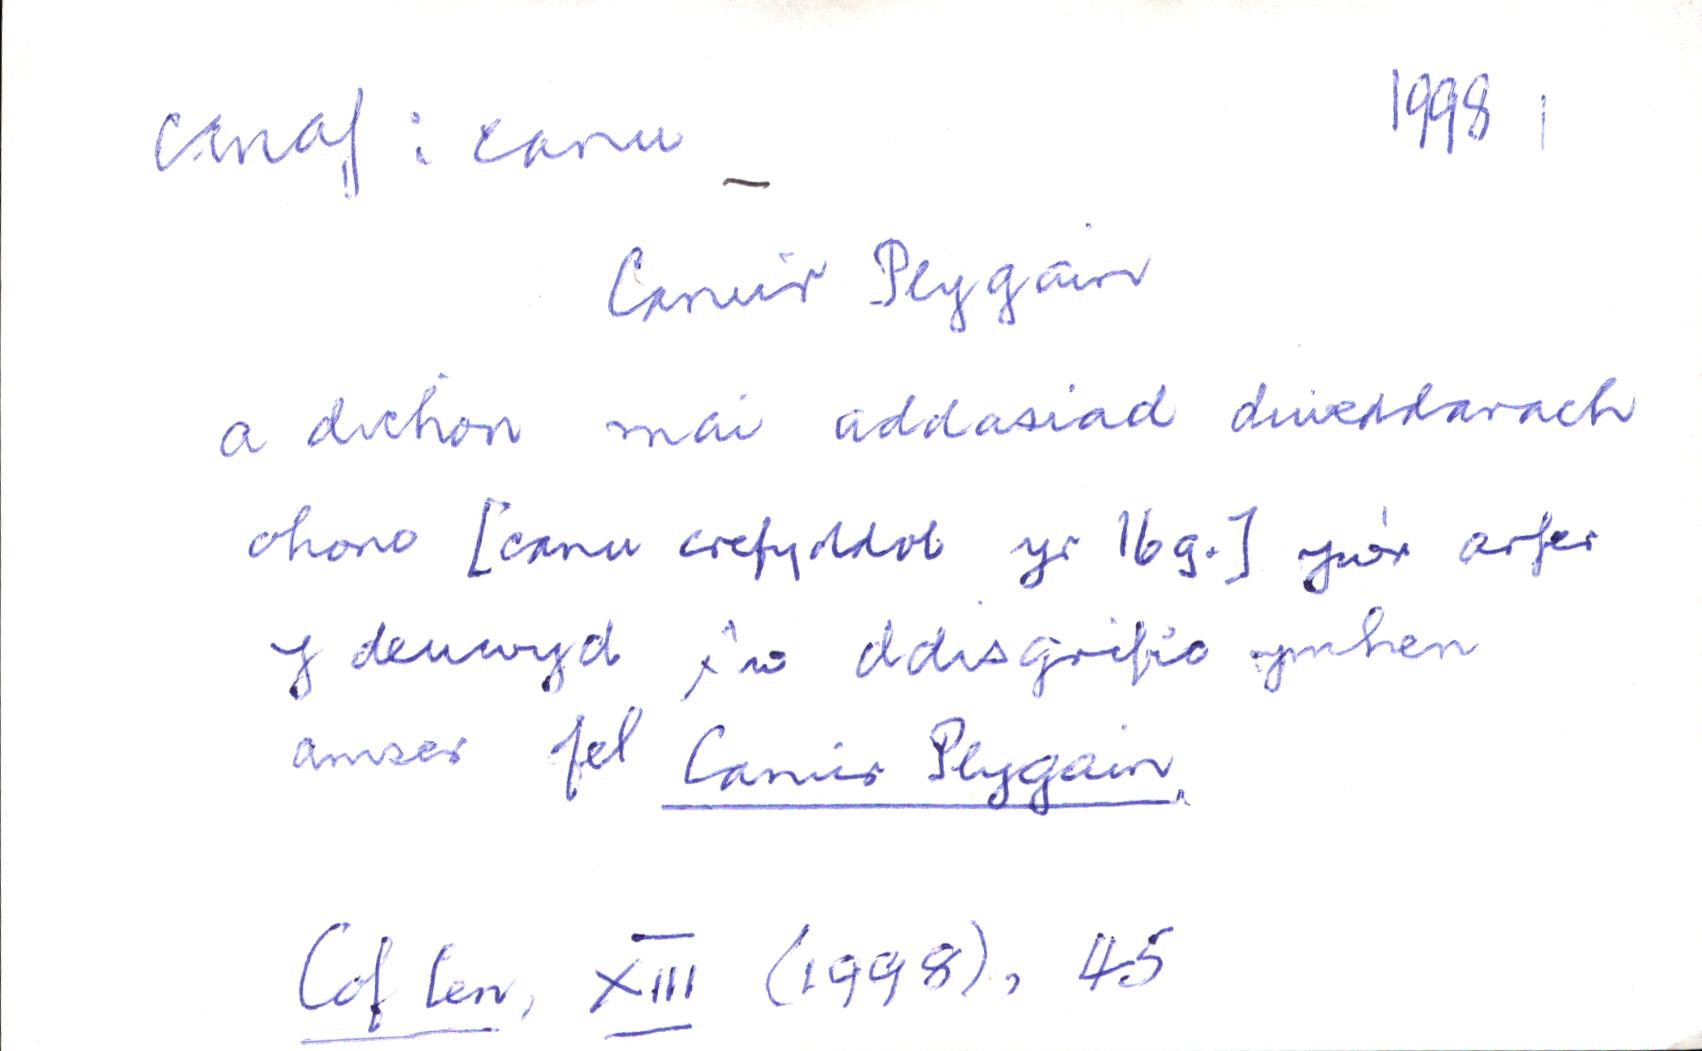 canaf : canu
1998
Canu'r Plygain
a dichon mai addasiad diweddarach
ohono [canu crefyddol yr 16g.] yw'r arfer
y deuwyd i'w ddisgrifio ymhen
amser fel Canu'r Plygain.
Cof Cen, XIII (1998), 45